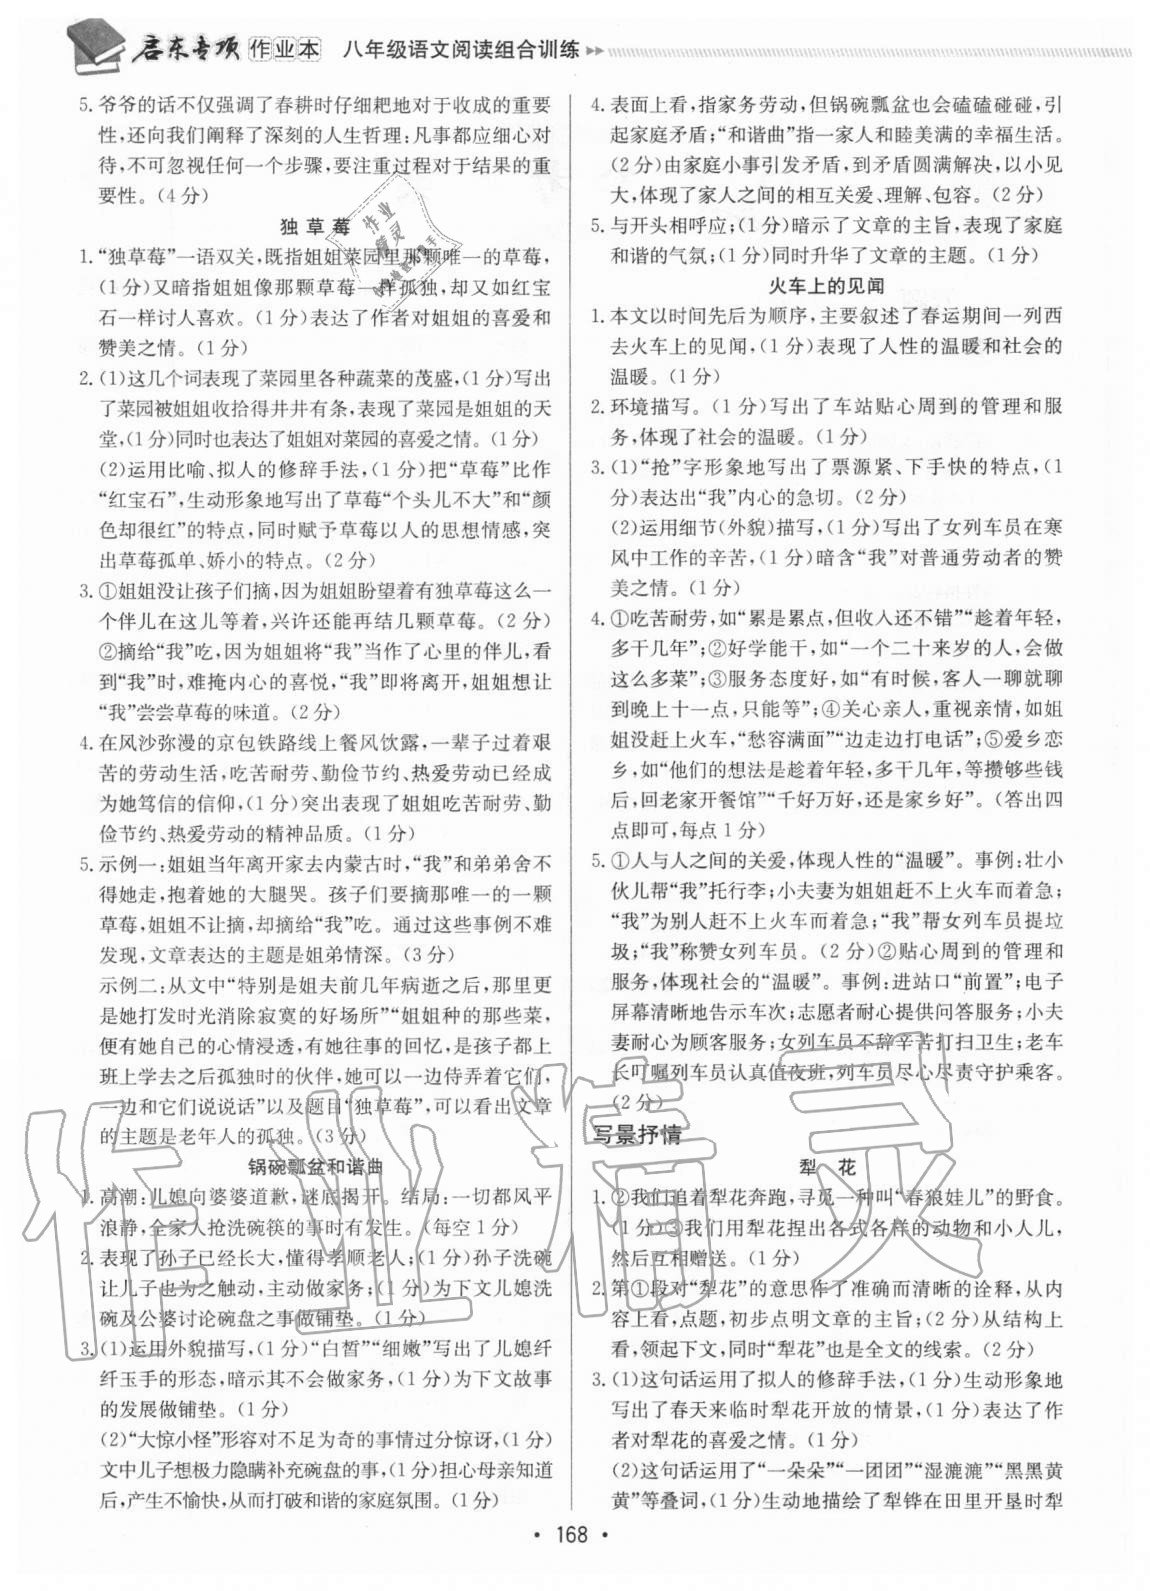 启东专项 作业本 八年级语文阅读组合训练
5. 爷爷的话不仅强调了春耕时仔细耙地对于收成的重要
性,还向我们阐释了深刻的人生哲理:凡事都应细心对
待,不可忽视任何一个步骤,要注重过程对于结果的重
要性。(4 分)
独 草 莓
1. “独草莓”一语双关,既指姐姐菜园里那颗唯一的草莓,
(1 分)又暗指姐姐像那颗草莓一样孤独,却又如红宝
石一样讨人喜欢。(1 分)表达了作者对姐姐的喜爱和
赞美之情。(1 分)
2. (1)这几个词表现了菜园里各种蔬菜的茂盛,(1 分)写出
了菜园被姐姐收拾得井井有条,表现了菜园是姐姐的天
堂,(1 分)同时也表达了姐姐对菜园的喜爱之情。(1 分)
(2)运用比喻、拟人的修辞手法,(1 分)把“草莓”比作
“红宝石”,生动形象地写出了草莓“个头儿不大”和“颜
色却很红”的特点,同时赋予草莓以人的思想情感,突
出草莓孤单、娇小的特点。(2 分)
3. ①姐姐没让孩子们摘,因为姐姐盼望着有独草莓这么一
个伴儿在这儿等着,兴许还能再结几颗草莓。(2 分)
②摘给“我”吃,因为姐姐将“我”当作了心里的伴儿,看
到“我”时,难掩内心的喜悦,“我”即将离开,姐姐想让
“我”尝尝草莓的味道。(2 分)
4. 在风沙弥漫的京包铁路线上餐风饮露,一辈子过着艰
苦的劳动生活,吃苦耐劳、勤俭节约、热爱劳动已经成
为她笃信的信仰,(1 分)突出表现了姐姐吃苦耐劳、勤
俭节约、热爱劳动的精神品质。(1 分)
5. 示例一:姐姐当年离开家去内蒙古时,“我”和弟弟舍不
得她走,抱着她的大腿哭。孩子们要摘那唯一的一颗
草莓,姐姐不让摘,却摘给“我”吃。通过这些事例不难
发现,文章表达的主题是姐弟情深。(3 分)
示例二:从文中“特别是姐夫前几年病逝之后,那里更
是她打发时光消除寂寞的好场所”“姐姐种的那些菜,
便有她自己的心情浸透,有她往事的回忆,是孩子都上
班上学去之后孤独时的伙伴,她可以一边侍弄着它们,
一边和它们说说话”以及题目“独草莓”,可以看出文章
的主题是老年人的孤独。(3 分)
锅碗瓢盆和谐曲
1. 高潮:儿媳向婆婆道歉,谜底揭开。结局:一切都风平
浪静,全家人抢洗碗筷的事时有发生。(每空 1 分)
2. 表现了孙子已经长大,懂得孝顺老人;(1 分)孙子洗碗
让儿子也为之触动,主动做家务;(1 分)为下文儿媳洗
碗及公婆讨论碗盘之事做铺垫。(1 分)
3. (1)运用外貌描写,(1 分)“白皙”“细嫩”写出了儿媳纤
纤玉手的形态,暗示其不做家务,(1 分)为下文故事
的发展做铺垫。(1 分)
(2)“大惊小怪”形容对不足为奇的事情过分惊讶,(1 分)
文中儿子想极力隐瞒补充碗盘的事,(1 分)担心母亲知道
后,产生不愉快,从而打破和谐的家庭氛围。(1 分)
4. 表面上看,指家务劳动,但锅碗瓢盆也会磕磕碰碰,引
起家庭矛盾;“和谐曲”指一家人和睦美满的幸福生活。
(2 分)由家庭小事引发矛盾,到矛盾圆满解决,以小见
大,体现了家人之间的相互关爱、理解、包容。(2 分)
5. 与开头相呼应;(1 分)暗示了文章的主旨,表现了家庭
和谐的气氛;(1 分)同时升华了文章的主题。(1 分)
火车上的见闻
1. 本文以时间先后为顺序,主要叙述了春运期间一列西
去火车上的见闻,(1 分)表现了人性的温暖和社会的
温暖。(1 分)
2. 环境描写。(1 分)写出了车站贴心周到的管理和服
务,体现了社会的温暖。(1 分)
3. (1)“抢”字形象地写出了票源紧、下手快的特点,(1
分)表达出“我”内心的急切。(2 分)
(2)运用细节(外貌)描写,(1 分)写出了女列车员在寒
风中工作的辛苦,(1 分)暗含“我”对普通劳动者的赞
美之情。(1 分)
4. ①吃苦耐劳,如“累是累点,但收入还不错”“趁着年轻,
多干几年”;②好学能干,如“一个二十来岁的人,会做
这么多菜”;③服务态度好,如“有时候,客人一聊就聊
到晚上十一点,只能等”;④关心亲人,重视亲情,如姐
姐没赶上火车,“愁容满面”“边走边打电话”;⑤爱乡恋
乡,如“他们的想法是趁着年轻,多干几年,等攒够些钱
后,回老家开餐馆”“千好万好,还是家乡好”。(答出四
点即可,每点 1 分)
5. ①人与人之间的关爱,体现人性的“温暖”。事例:壮小
伙儿帮“我”托行李;小夫妻为姐姐赶不上火车而着急;
“我”为别人赶不上火车而着急;“我”帮女列车员提垃
圾;“我”称赞女列车员。(2 分)②贴心周到的管理和
服务,体现社会的“温暖”。事例:进站口“前置”;电子
屏幕清晰地告示车次;志愿者耐心提供问答服务;小夫
妻耐心为顾客服务;女列车员不辞辛苦打扫卫生;老车
长叮嘱列车员认真值夜班,列车员尽心尽责守护乘客。
(2 分)
写景抒情
犁 花
1. ②我们追着犁花奔跑,寻觅一种叫“春狼娃儿”的野食。
(1 分)③我们用犁花捏出各式各样的动物和小人儿,
然后互相赠送。(1 分)
2. 第①段对“犁花”的意思作了准确而清晰的诠释,从内
容上看,点题,初步点明文章的主旨;(2 分)从结构上
看,领起下文,同时“犁花”也是全文的线索。(2 分)
3. (1)这句话运用了拟人的修辞手法,(1 分)生动形象地
写出了春天来临时犁花开放的情景,(1 分)表达了作
者对犁花的喜爱之情。(1 分)
(2)这句话运用了“一朵朵”“一团团”“湿漉漉”“黑黑黄
黄”等叠词,(1 分)生动地描绘了犁铧在田里开垦时犁
• 168 •
作业精灵
作业
精灵